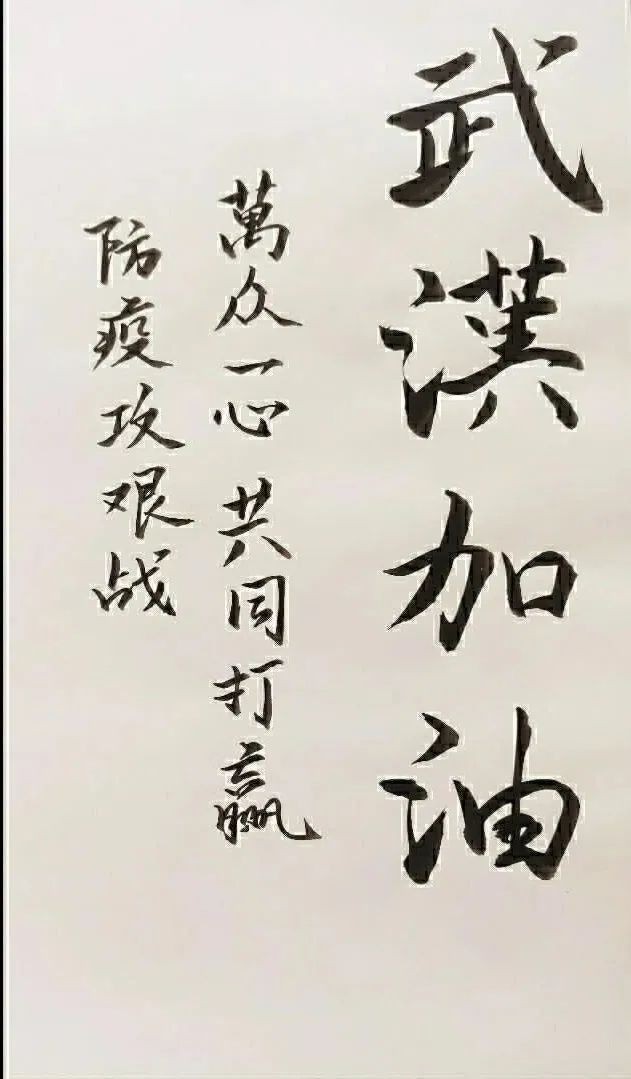 武漢加油
萬众一心 共同打赢
防疫攻艰战